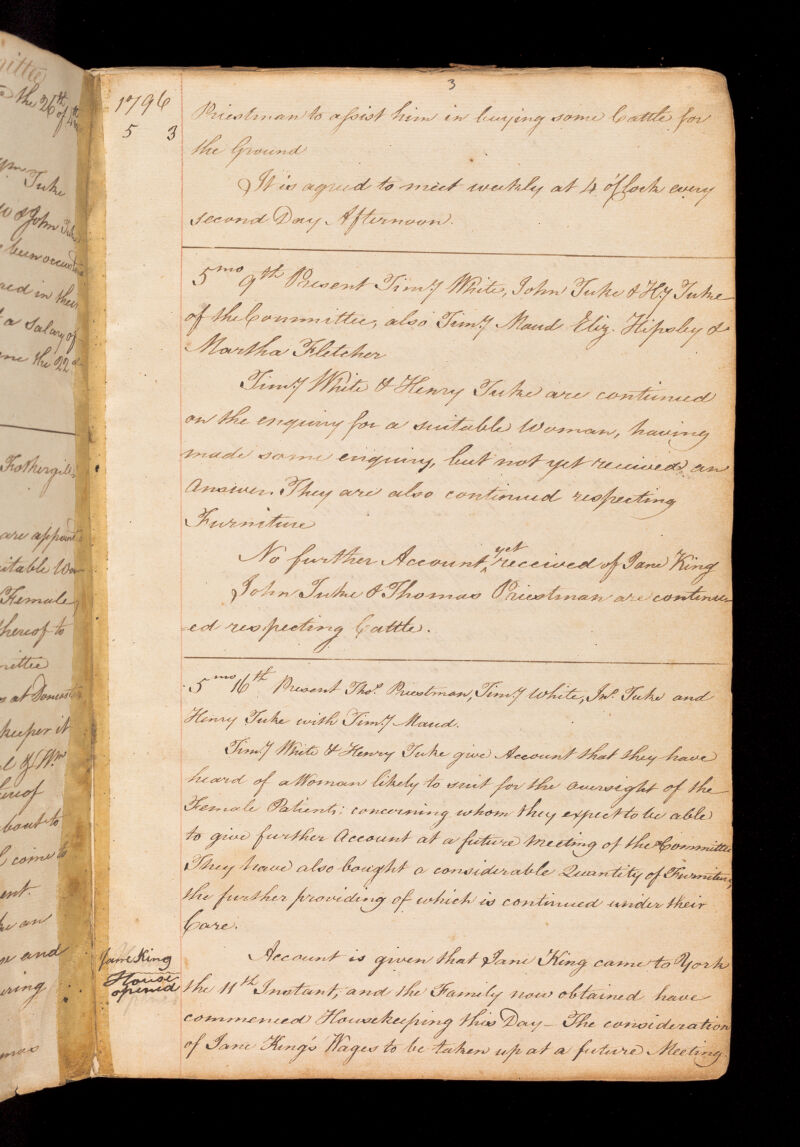 3
1796
5 3
Priestman to assist him in buying some Cattle for
the Ground
It is agreed to meet weekly at 4 o'Clock every
second Day Afternoon.
5mo 9th Present Timy White, John Tuke & Hy Tuke
of the Committee, also Timy Maud Eliz. Hipsley &
Martha Fletcher
Timy White & Henry Tuke are continued
on the enquiry for a suitable Woman, having
made some enquiry, but not yet received an
Answer. They are also continued respecting
Furniture
No further Account yet received of Jane King
John Tuke & Thomas Priestman are continu-
-ed respecting Cattle.
5mo 16th Present Thos. Priestman, Timy White, Jno. Tuke and
Henry Tuke with Timy Maud.
Timy White & Henry Tuke give Account that they have
heard of a Woman likely to suit for the oversight of the
Female Patients; concerning whom they expect to be able
to give further Account at a future Meeting of the Committee
They have also bought a considerable Quantity of Furniture,
the further providing of which is continued under their
Care.
Jane King
House
opened
Account is given that Jane King came to York
the 11th Instant, and the Family now obtained have
commenced Housekeeping this Day – The consideration
of Jane King's Wages to be taken up at a future Meeting.
the 26th
of 4th
Tuke
& John
been
in their
a Salary of
the 22
Fothergill
are
Female
thereof to
at
keeper it
& Wm
about to
come to
an
and